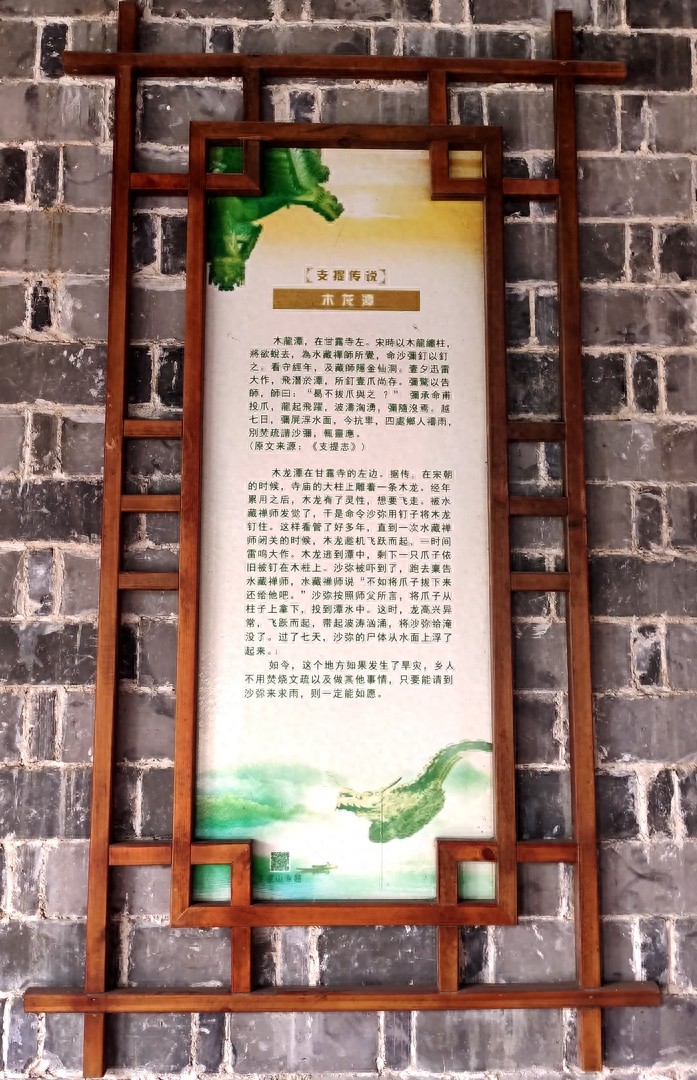 【支提传说】
木龙潭
木龍潭，在甘露寺左。宋時以木龍纏柱，
將欲蛻去，為水藏禪師所覺，命沙彌釘以釘
之。看守經年，及藏師隱金仙洞。壹夕迅雷
大作，飛潛於潭，所釘壹爪尚存。彌驚以告
師，師曰：“曷不拔爪與之？” 彌承命甫
投爪，龍起飛躍，波濤洶湧，彌隨沒焉。越
七日，彌屍浮水面。今抗旱，四處鄉人禱雨，
別焚疏請沙彌，輒靈應。
（原文来源：《支提志》）
木龙潭在甘露寺的左边。据传，在宋朝
的时候，寺庙的大柱上雕着一条木龙。经年
累月之后，木龙有了灵性，想要飞走。被水
藏禅师发觉了，于是命令沙弥用钉子将木龙
钉住。这样看管了好多年，直到一次水藏禅
师闭关的时候，木龙趁机飞跃而起，一时间
雷鸣大作。木龙逃到潭中，剩下一只爪子依
旧被钉在木柱上。沙弥被吓到了，跑去稟告
水藏禅师，水藏禅师说“不如将爪子拔下来
还给他吧。”沙弥按照师父所言，将爪子从
柱子上拿下，投到潭水中。这时，龙高兴异
常，飞跃而起，带起波涛汹涌，将沙弥给淹
没了。过了七天，沙弥的尸体从水面上浮了
起来。
如今，这个地方如果发生了旱灾，乡人
不用焚烧文疏以及做其他事情，只要能请到
沙弥来求雨，则一定能如愿。